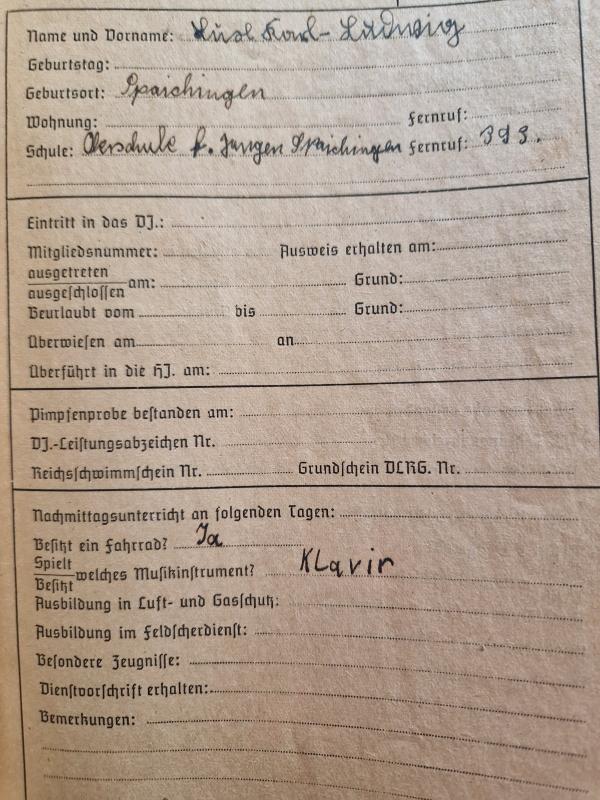 Name und Vorname: Karl-Ludwig
Geburtstag:
Geburtsort: Spaichingen
Wohnung: Fernruf:
Schule: Oberschule f. Jungen Spaichingen Fernruf: 393.
Eintritt in das DJ.:
Mitgliedsnummer: Ausweis erhalten am:
ausgetreten
ausgeschlossen am: Grund:
Beurlaubt vom bis Grund:
Überwiesen am an
Überführt in die HJ. am:
Pimpfenprobe bestanden am:
DJ.-Leistungsabzeichen Nr.
Reichsschwimmschein Nr. Grundschein DLRG. Nr.
Nachmittagsunterricht an folgenden Tagen:
Besitzt ein Fahrrad? Ja
Spielt
Besitzt welches Musikinstrument? Klavir
Ausbildung in Luft- und Gasschutz:
Ausbildung im Feldscherdienst:
Besondere Zeugnisse:
Dienstvorschrift erhalten:
Bemerkungen: